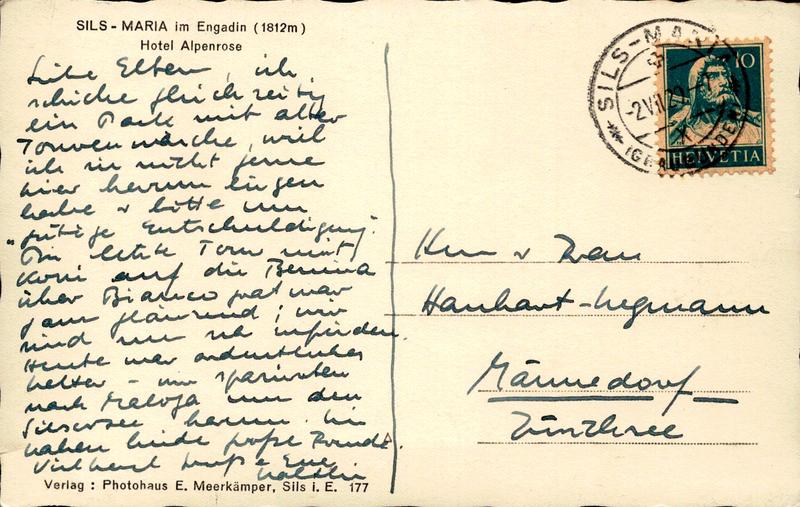 SILS - MARIA im Engadin (1812m)
Hotel Alpenrose
Liebe Eltern, ich
schicke gleichzeitig
ein Pack mit alter
Tourenwäsche, weil
ich sie nicht gerne
hier herum liegen
habe & bitte um
"gütige Entschuldigung".
Die letzte Tour mit
auf die Bernina
über Biancograt war
ganz glänzend; wir
sind nun
Heute war ordentliches
Wetter - wir spazierten
nach Maloja um den
Silsersee herum. Wir
haben beide große Freude.
Viel herzl. Grüße Eure
SILS - MARIA
-2.VII.29.-
(GRAUBÜNDEN)
10
HELVETIA
Herrn & Frau
Hanhart-
Männedorf
Zürichsee
Verlag : Photohaus E. Meerkämper, Sils i. E. 177